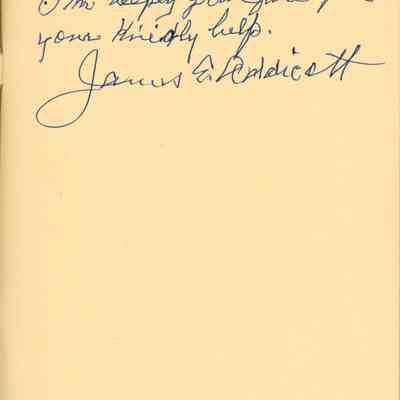 I'm deeply grateful for
your kindly help.
James E. Addicott